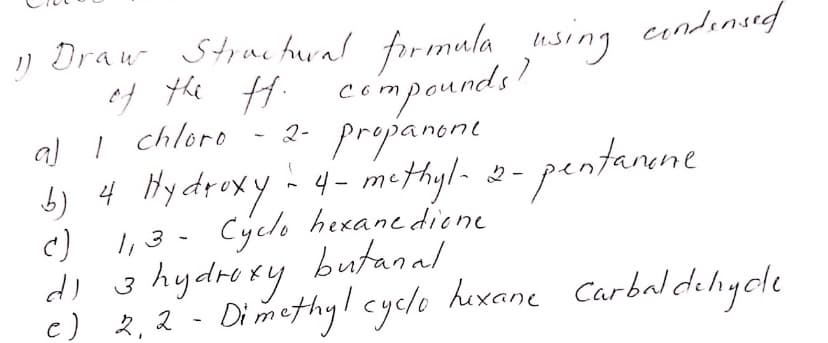 1) Draw Structural formula using condensed
of the ff. compounds?
a) 1 chloro - 2- propanone
b) 4 Hydroxy - 4- methyl- 2- pentanone
c) 1,3 - Cyclo hexanedione
d) 3 hydroxy butanal
e) 2,2 - Dimethyl cyclo hexane Carbaldehyde